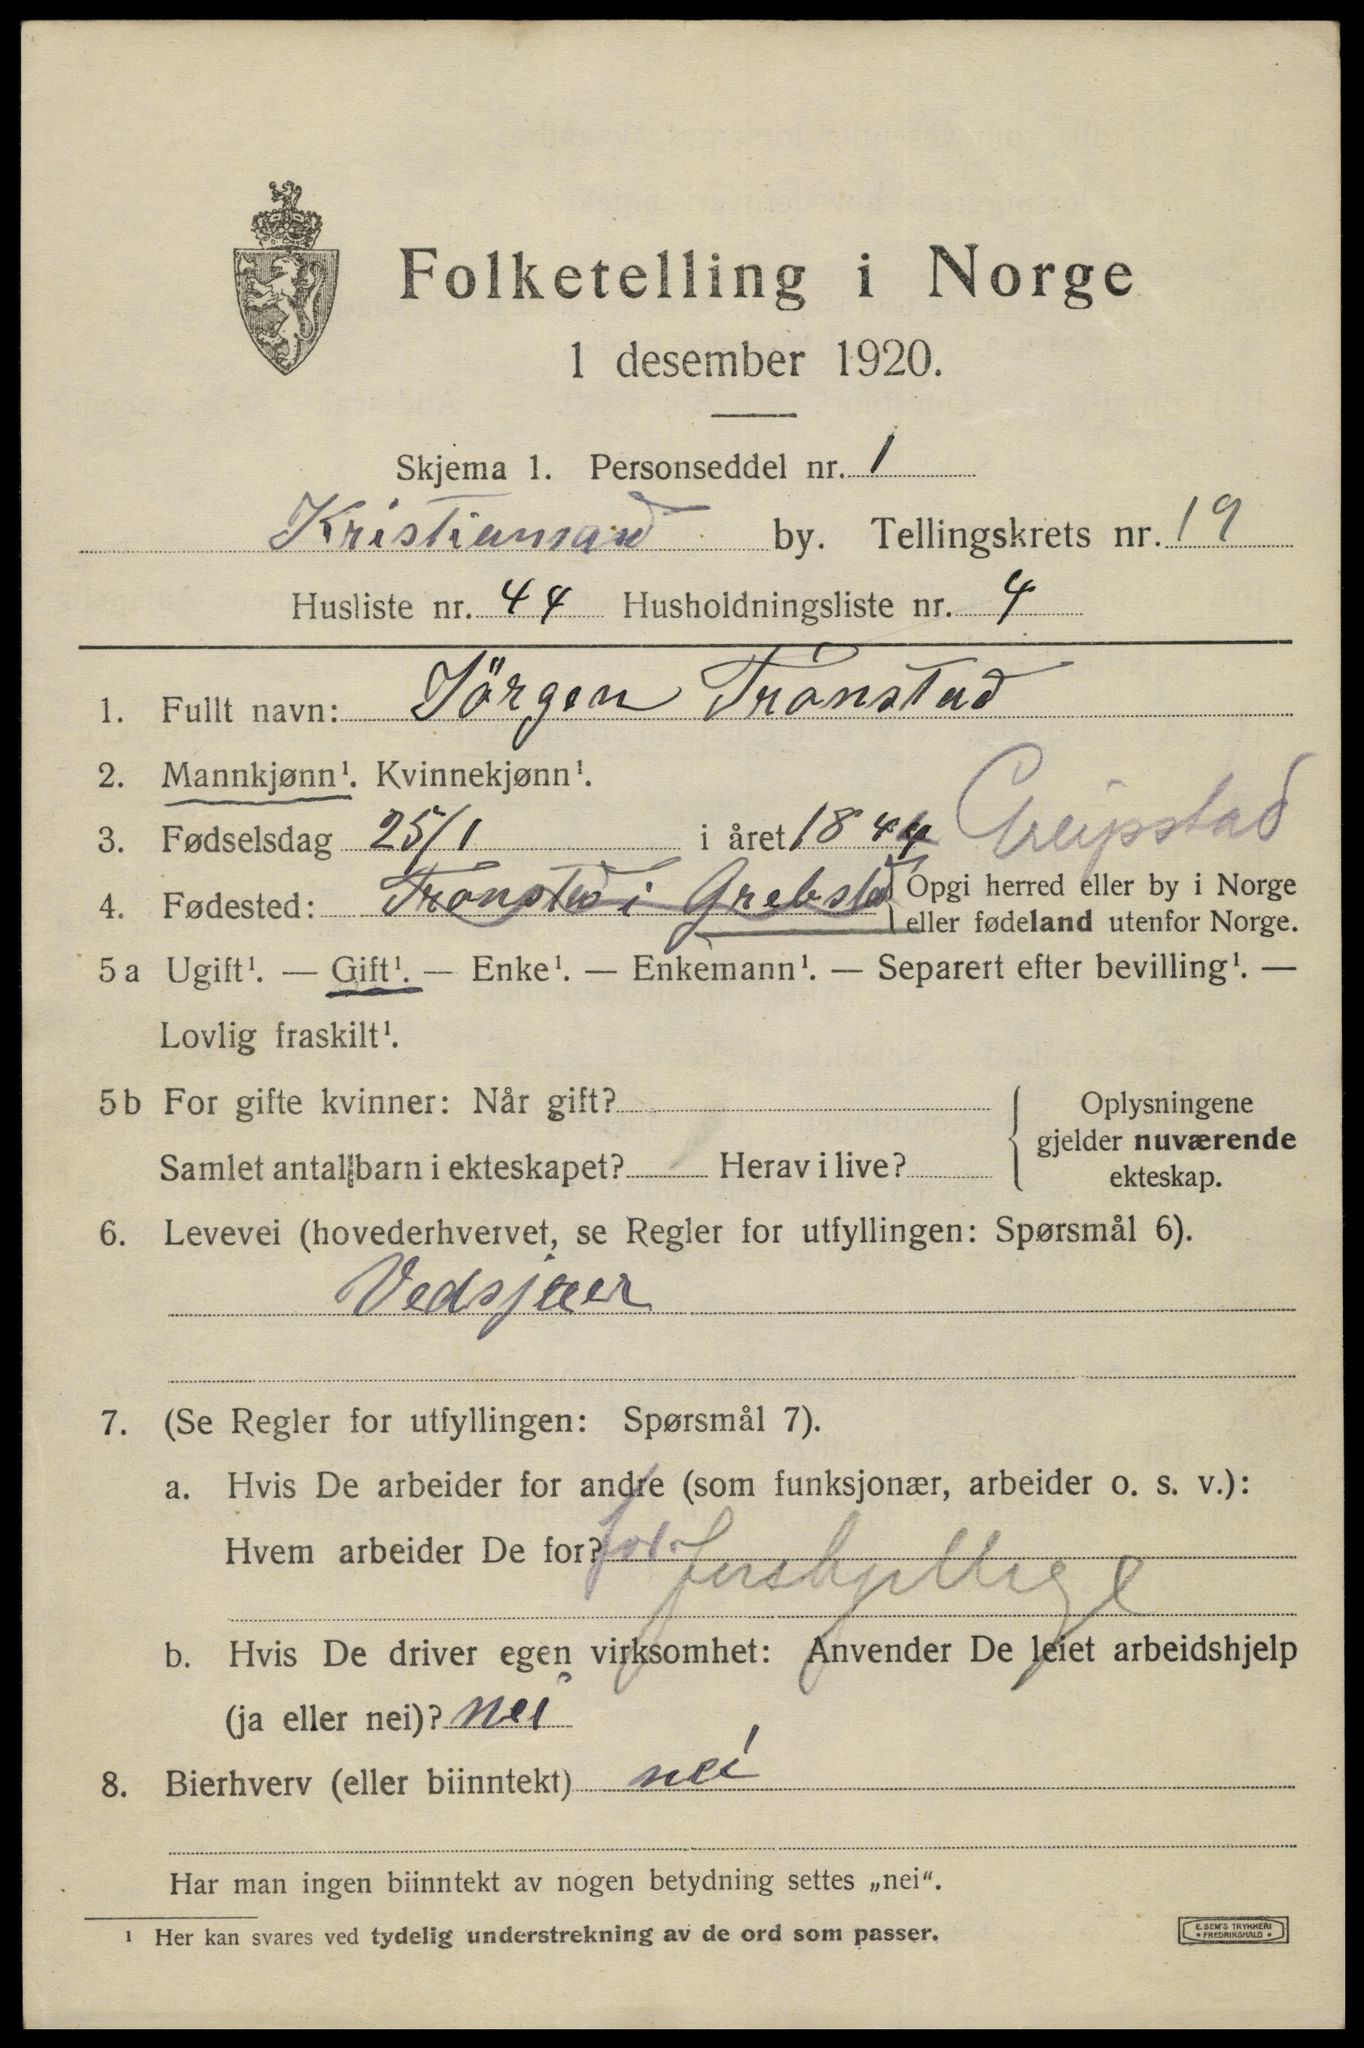 Folketelling i Norge
1 desember 1920.
Skjema 1. Personseddel nr. 1
Kristiansand by. Tellingskrets nr. 19
Husliste nr. 44 Husholdningsliste nr. 4
1. Fullt navn: Jörgen Tronstad
2. Mannkjønn¹. Kvinnekjønn¹.
3. Fødselsdag 25/1 i året 1844 Greipstad
4. Fødested: Tronstad i Grebstad Opgi herred eller by i Norge
eller fødeland utenfor Norge.
5 a Ugift¹. — Gift¹. — Enke¹. — Enkemann¹. — Separert efter bevilling¹. —
Lovlig fraskilt¹.
5 b For gifte kvinner: Når gift?
Samlet antal barn i ekteskapet? Herav i live?
Oplysningene
gjelder nuværende
ekteskap.
6. Levevei (hovederhvervet, se Regler for utfyllingen: Spørsmål 6).
Vedsjauer
7. (Se Regler for utfyllingen: Spørsmål 7).
a. Hvis De arbeider for andre (som funksjonær, arbeider o. s. v.):
Hvem arbeider De for? for. forskjellige
b. Hvis De driver egen virksomhet: Anvender De leiet arbeidshjelp
(ja eller nei)? nei
8. Bierhverv (eller biinntekt) nei
Har man ingen biinntekt av nogen betydning settes „nei“.
¹ Her kan svares ved tydelig understrekning av de ord som passer.
E. SEM'S TRYKKERI
FREDRIKSHALD